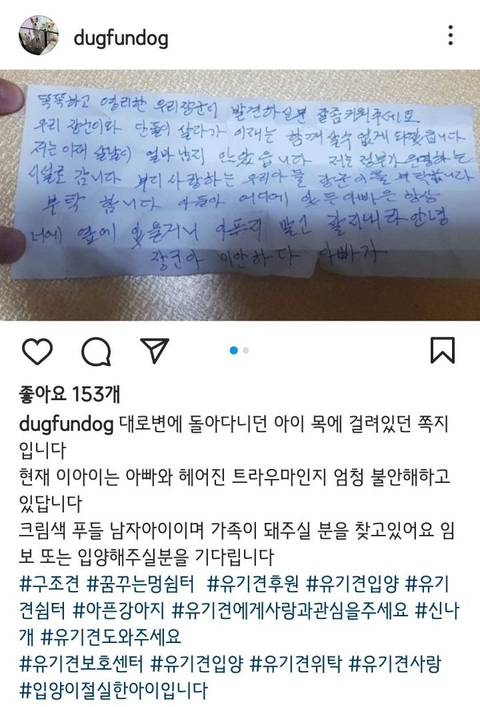 dugfundog
똑똑하고 영리한 우리장군이 발견하실분 잘좀키워주세요
우리 장군이와 단둘이 살다가 이래는 함께 살수 없게 돼었습니다
저는 이래 살날이 얼마 남지 안았습니다 저는 정부가 운영하는
시설로 갑니다 부디 사랑하는 우리아들 장군이를 부탁합니다
부탁 합니다 아들아 어디에 있든 아빠은 항상
너에 옆에 있을거니 아푸지 말고 잘지내라 안녕
장군아 미안하다 아빠가
좋아요 153개
dugfundog 대로변에 돌아다니던 아이 목에 걸려있던 쪽지
입니다
현재 이아이는 아빠와 헤어진 트라우마인지 엄청 불안해하고
있답니다
크림색 푸들 남자아이이며 가족이 돼주실 분을 찾고있어요 임
보 또는 입양해주실분을 기다립니다
#구조견 #꿈꾸는멍쉼터 #유기견후원 #유기견입양 #유기
견쉼터 #아픈강아지 #유기견에게사랑과관심을주세요 #신나
개 #유기견도와주세요
#유기견보호센터 #유기견입양 #유기견위탁 #유기견사랑
#입양이절실한아이입니다